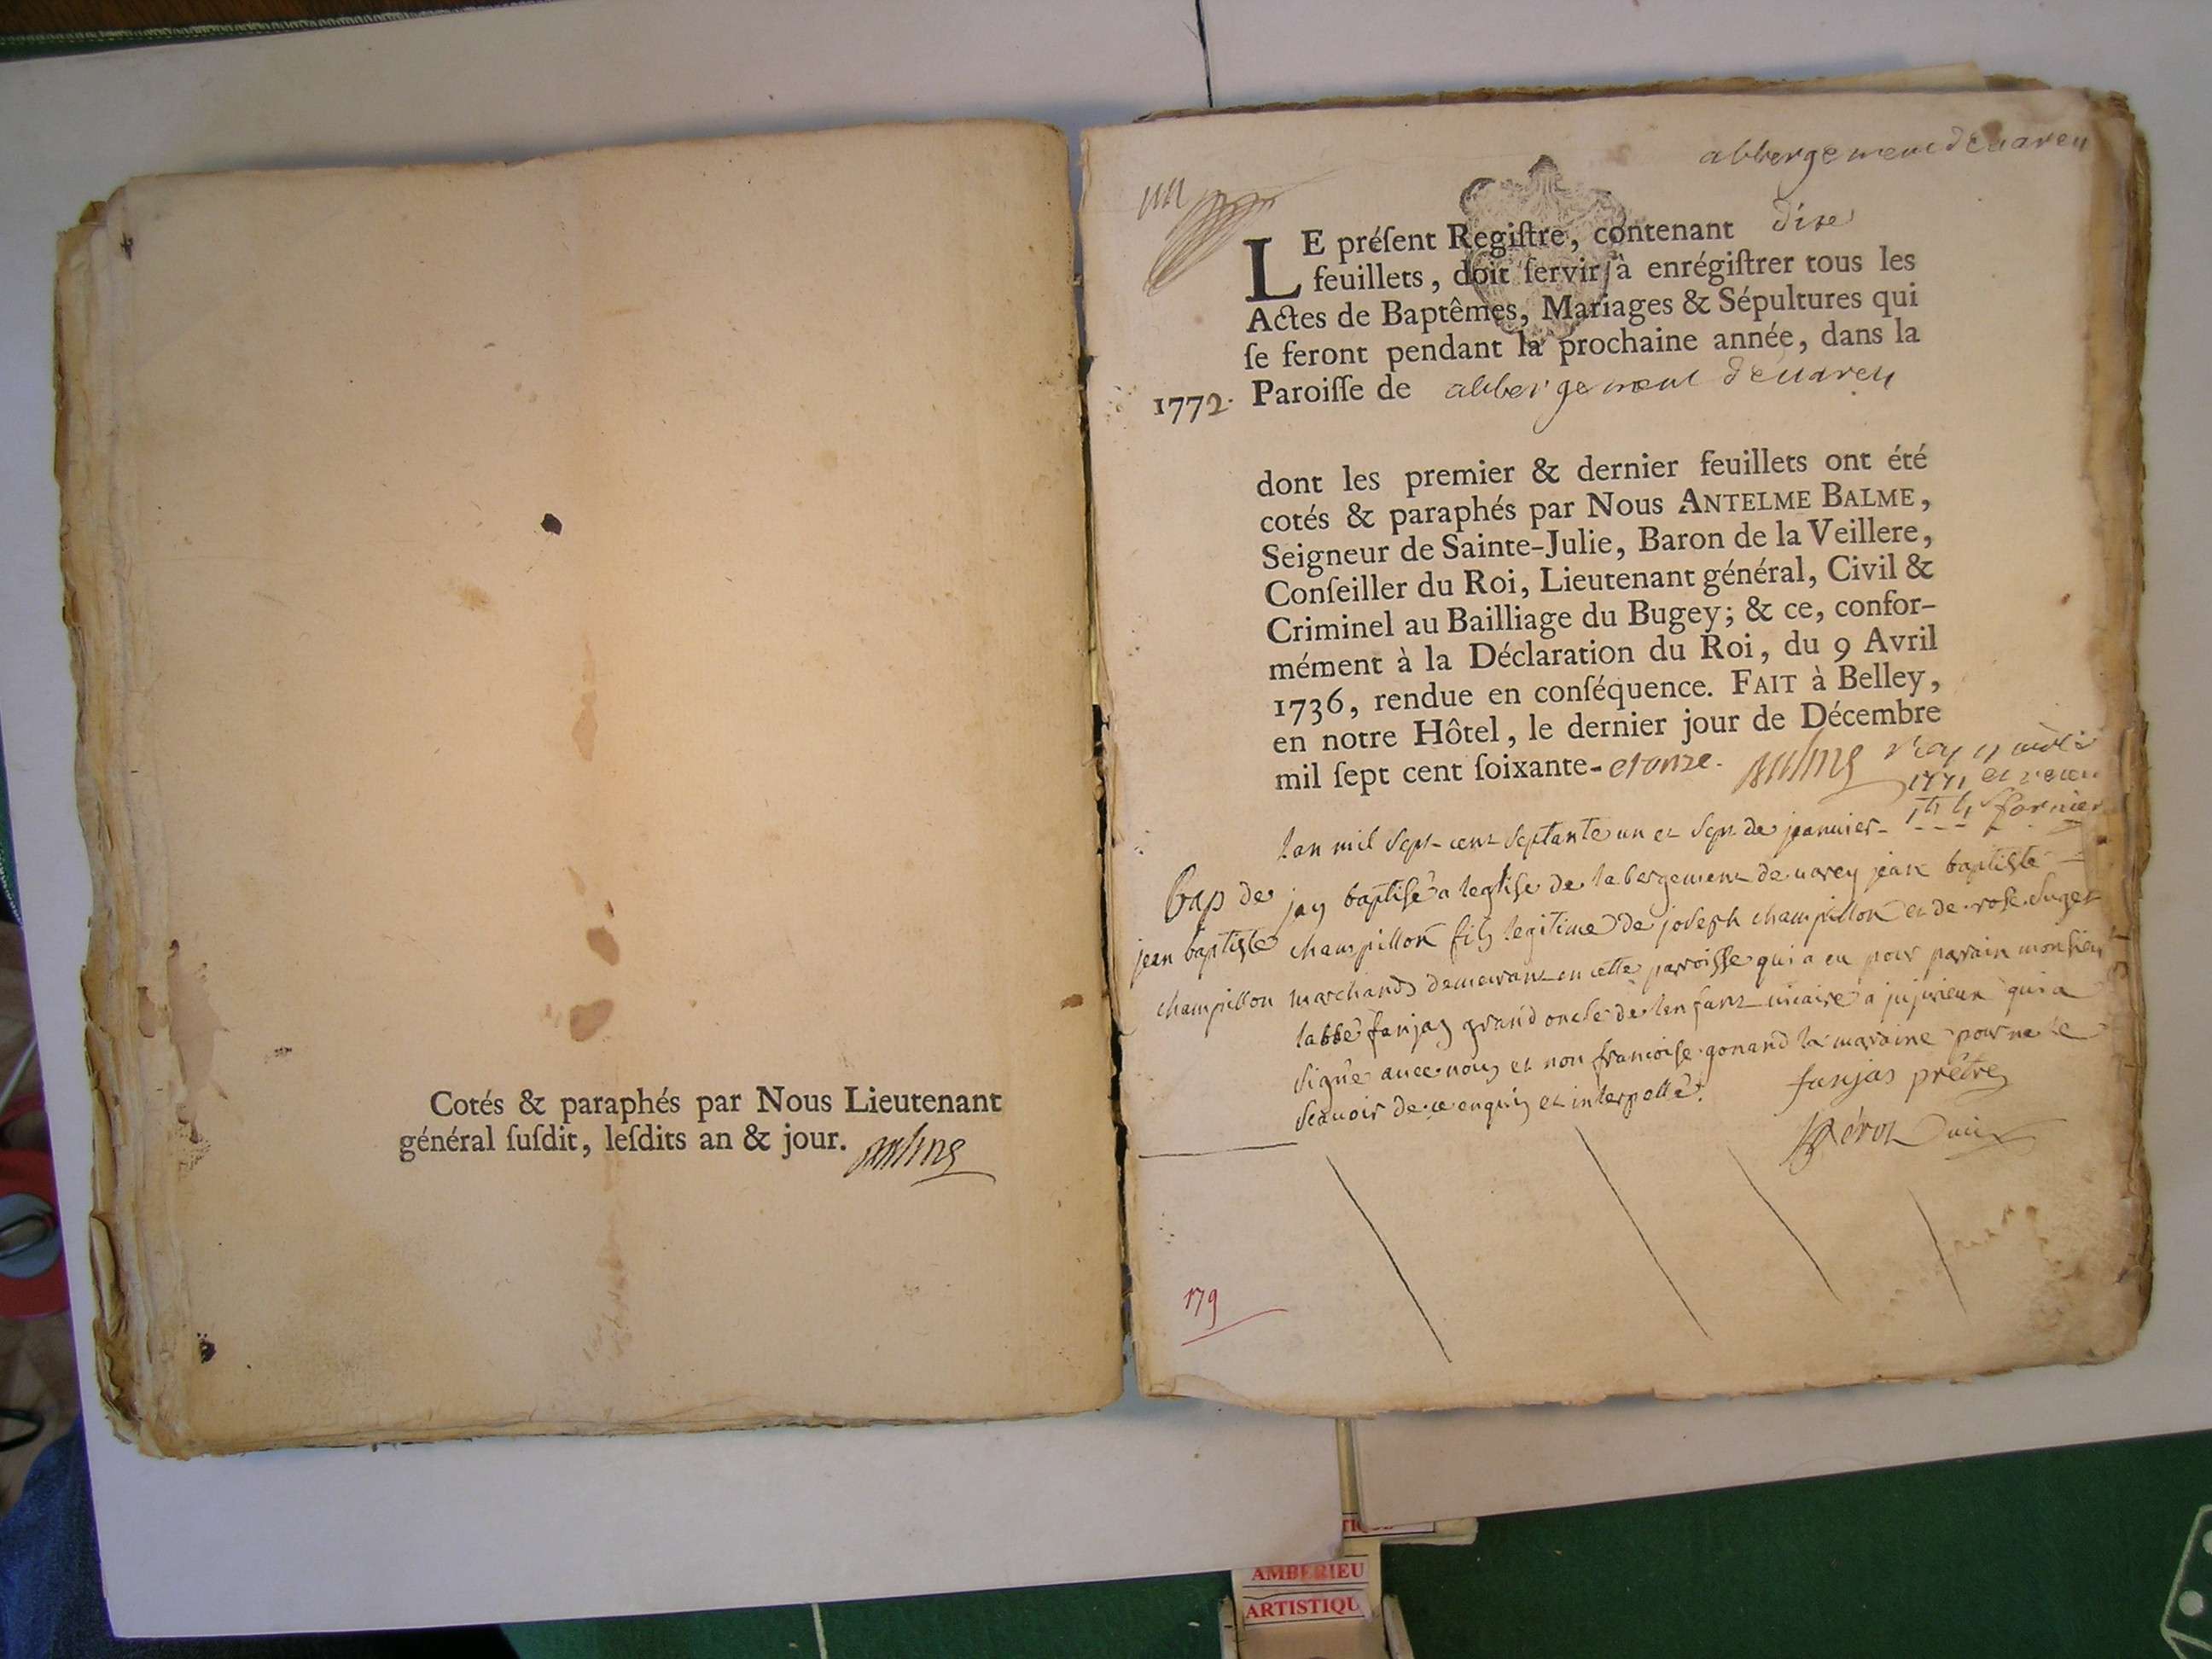 Cotés & paraphés par Nous Lieutenant
général ſuſdit, leſdits an & jour.
abbergement de uarey
LE préſent Regiſtre, contenant dixe
feuillets, doit ſervir à enrégiſtrer tous les
Actes de Baptêmes, Mariages & Sépultures qui
ſe feront pendant la prochaine année, dans la
1772. Paroiſſe de abbergement de uarey
dont les premier & dernier feuillets ont été
cotés & paraphés par Nous ANTELME BALME,
Seigneur de Sainte-Julie, Baron de la Veillere,
Conſeiller du Roi, Lieutenant général, Civil &
Criminel au Bailliage du Bugey; & ce, confor-
mément à la Déclaration du Roi, du 9 Avril
1736, rendue en conſéquence. FAIT à Belley,
en notre Hôtel, le dernier jour de Décembre
mil ſept cent ſoixante-et onze.
lan mil sept cent septante un et sept de januier
Bap de
jean baptiste
champillon
jay baptisé a leglise de labergement de uarey jean baptiste
champillon fils legitime de joseph champillon et de rose
marchands demeurant en cette parroisse qui a eu pour parain monsieur
labbé fanjas grand oncle de lenfant uicaire a jujurieux qui a
signé auec nous et non francoise gonand la maraine pour ne le
scauoir de ce enquis et interpellé.
fanjas prêtre
179
AMBERIEU
ARTISTIQU